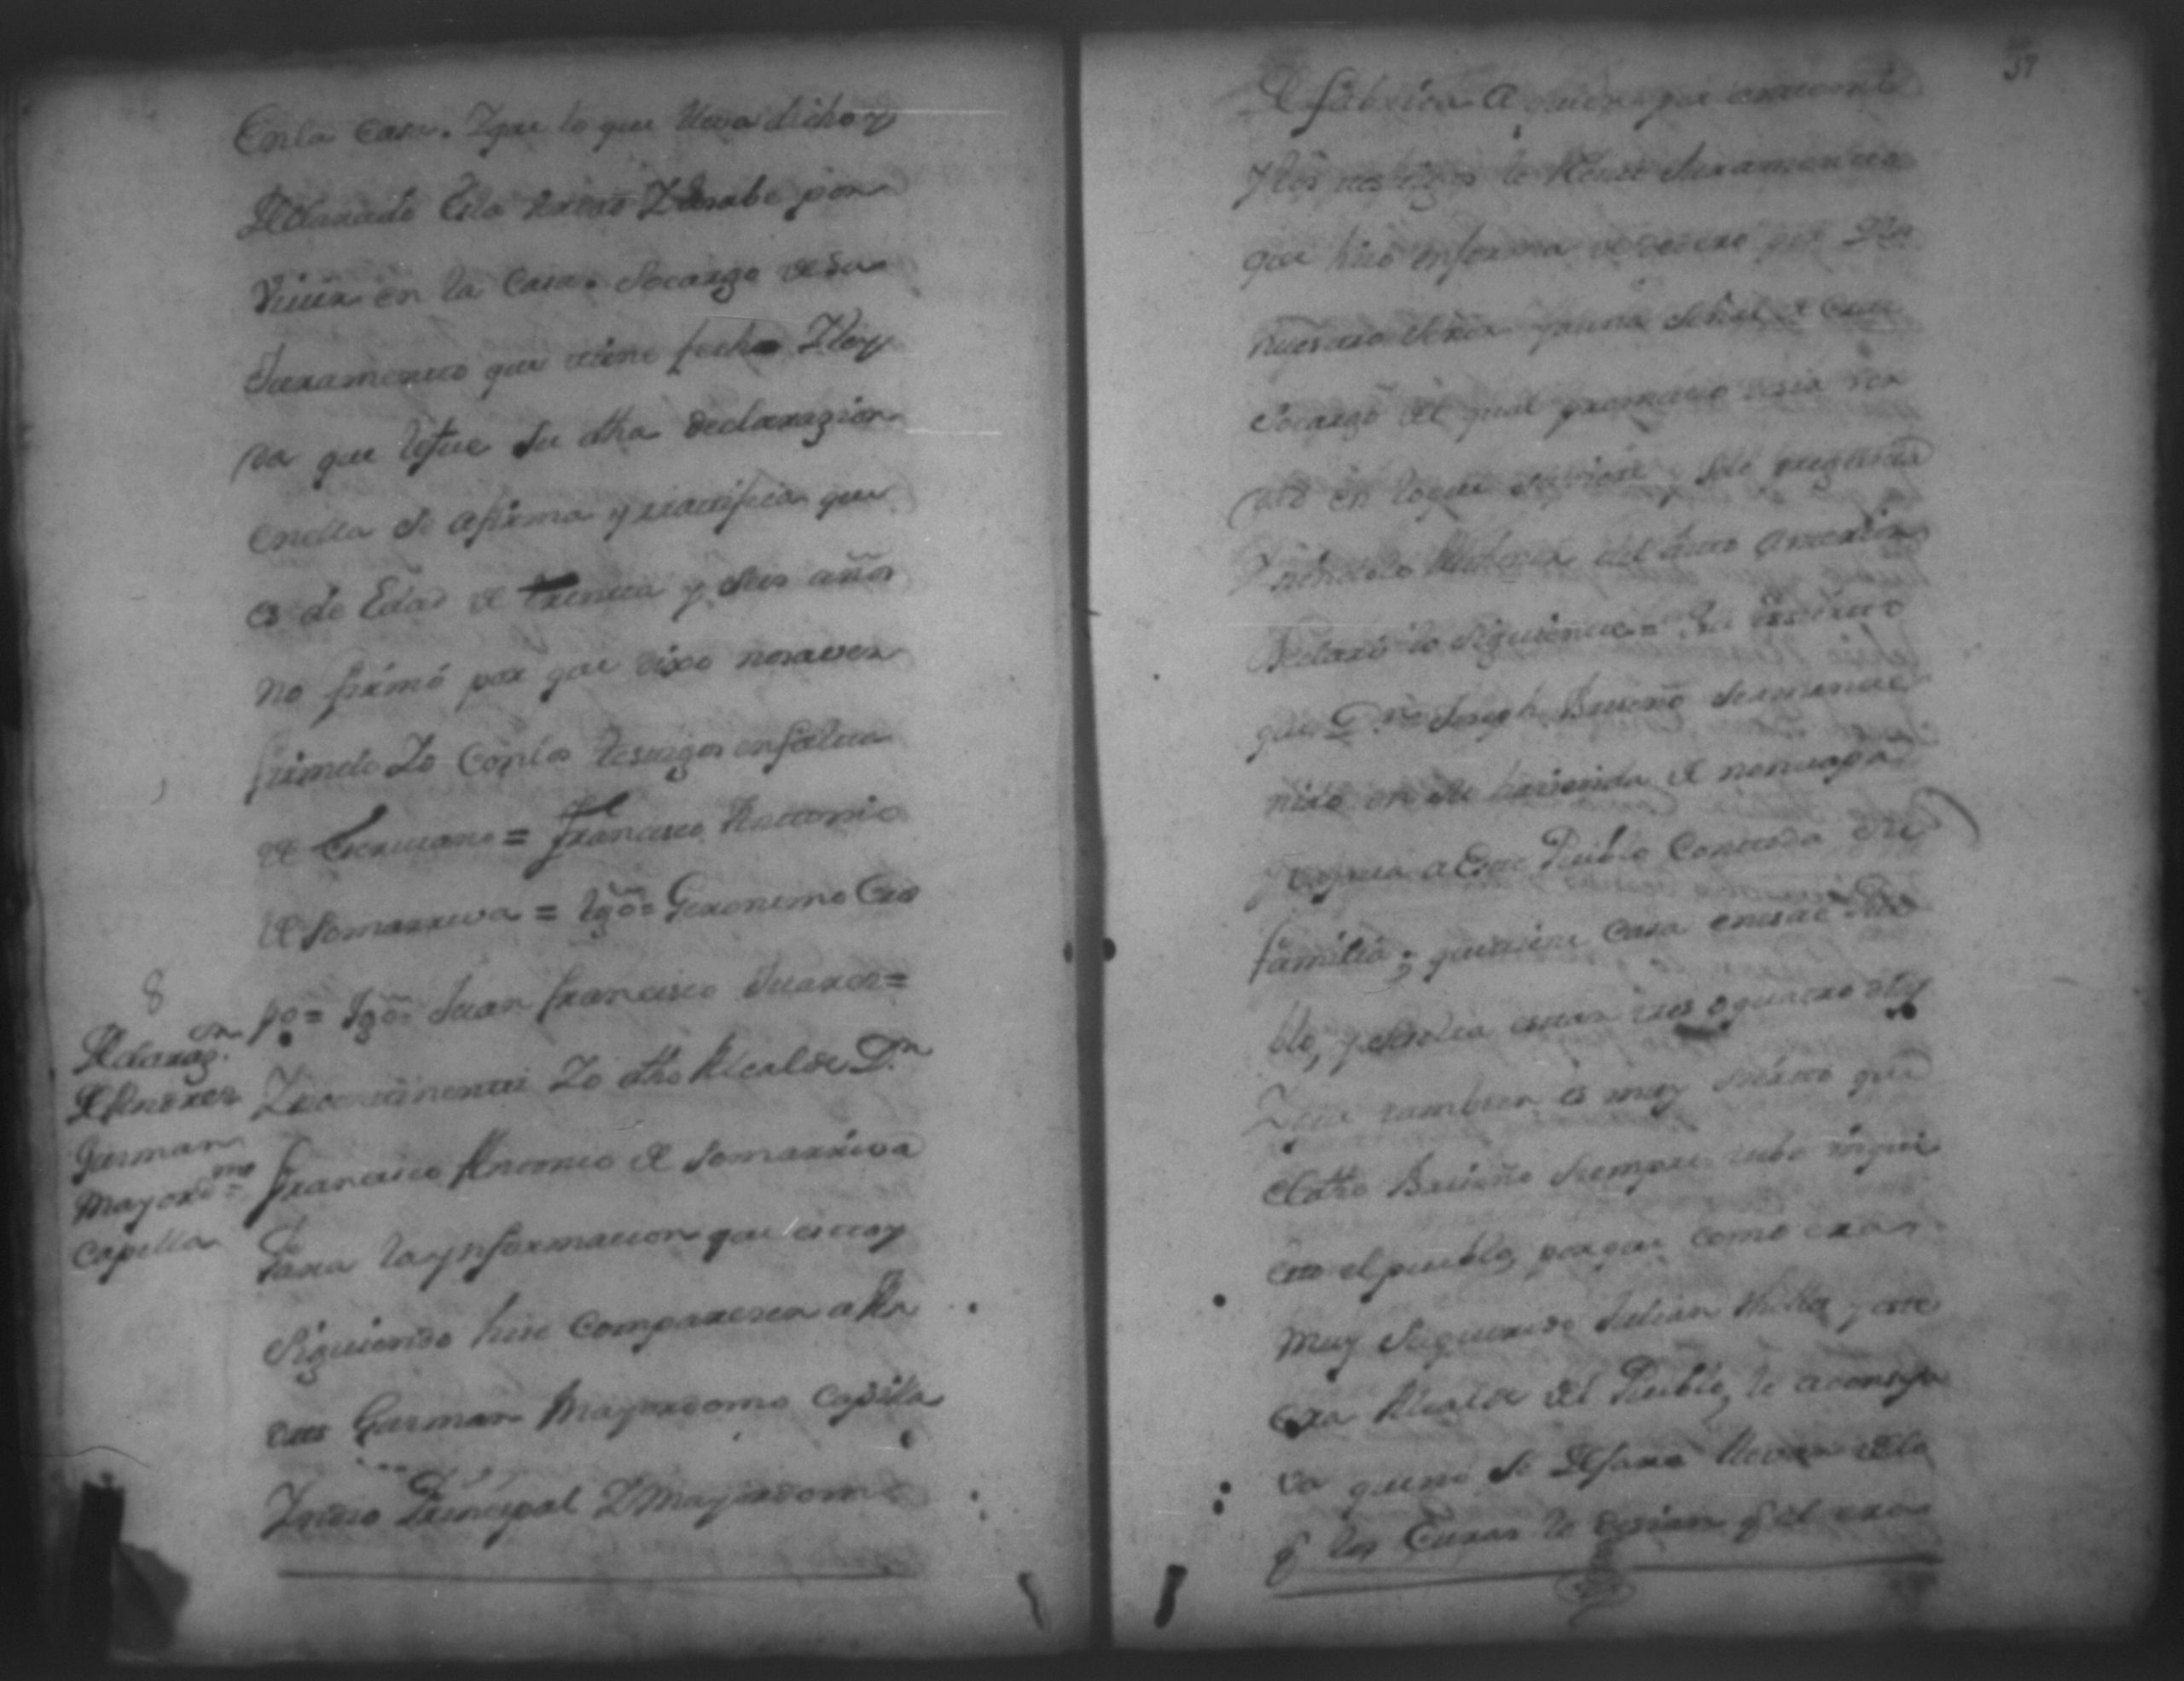 En la casa. Y que lo que lleva dicho y
declarado es lo sierto Y lo sabe por
viuir en la Casa. Socargo de su
Juramento que tiene fecho Y ley
da que le fue su dha declarazion
en ella se afirma y ratifica que
es de Edad de treinta y seis años
no firmó por que dixo no saver
firmelo Yo Con los testigos en falta
de Escriuano = Francisco Antonio
de Somarriva = tgo. Geronimo Cres
po = tgo. Juan francisco Juares =
8
Declarazon.
de
Gusman
Mayordmo
Capilla
Yncontinenti Yo dho Alcalde Dn.
Francisco Antonio de Somarriva
Para la ynformacion que estoy
Siguiendo hise Comparecer a
Gusman Mayordomo Capilla
Yndio Principal Y Mayordomo
37
de fabrica A quien por ante mi
y los testigos le Reciui Juramento
que hizo en forma de derecho por Dios
nuestro Señor y una señal de Cruz
Socargo del qual prometio desir ver
dad en lo que supiere y fuere preguntado
Y siendolo al thenor del Auto Antesedente
Declaró lo siguiente =
que Dn. Joseph Briseño se mantiene
nido en su hasienda de
y a Este Pueblo Con toda su
familia; que tiene casa en este Pue
blo, y en ella estan tres o quatro dias
Que tambien es muy sierto que
el dho Briseño siempre tubo inqui
eto el pueblo, porque como era
muy su querido Julian y este
era Alcalde del Pueblo, le aconseja
va que no se dejara llevar de lo
q los Curas le desian q el era